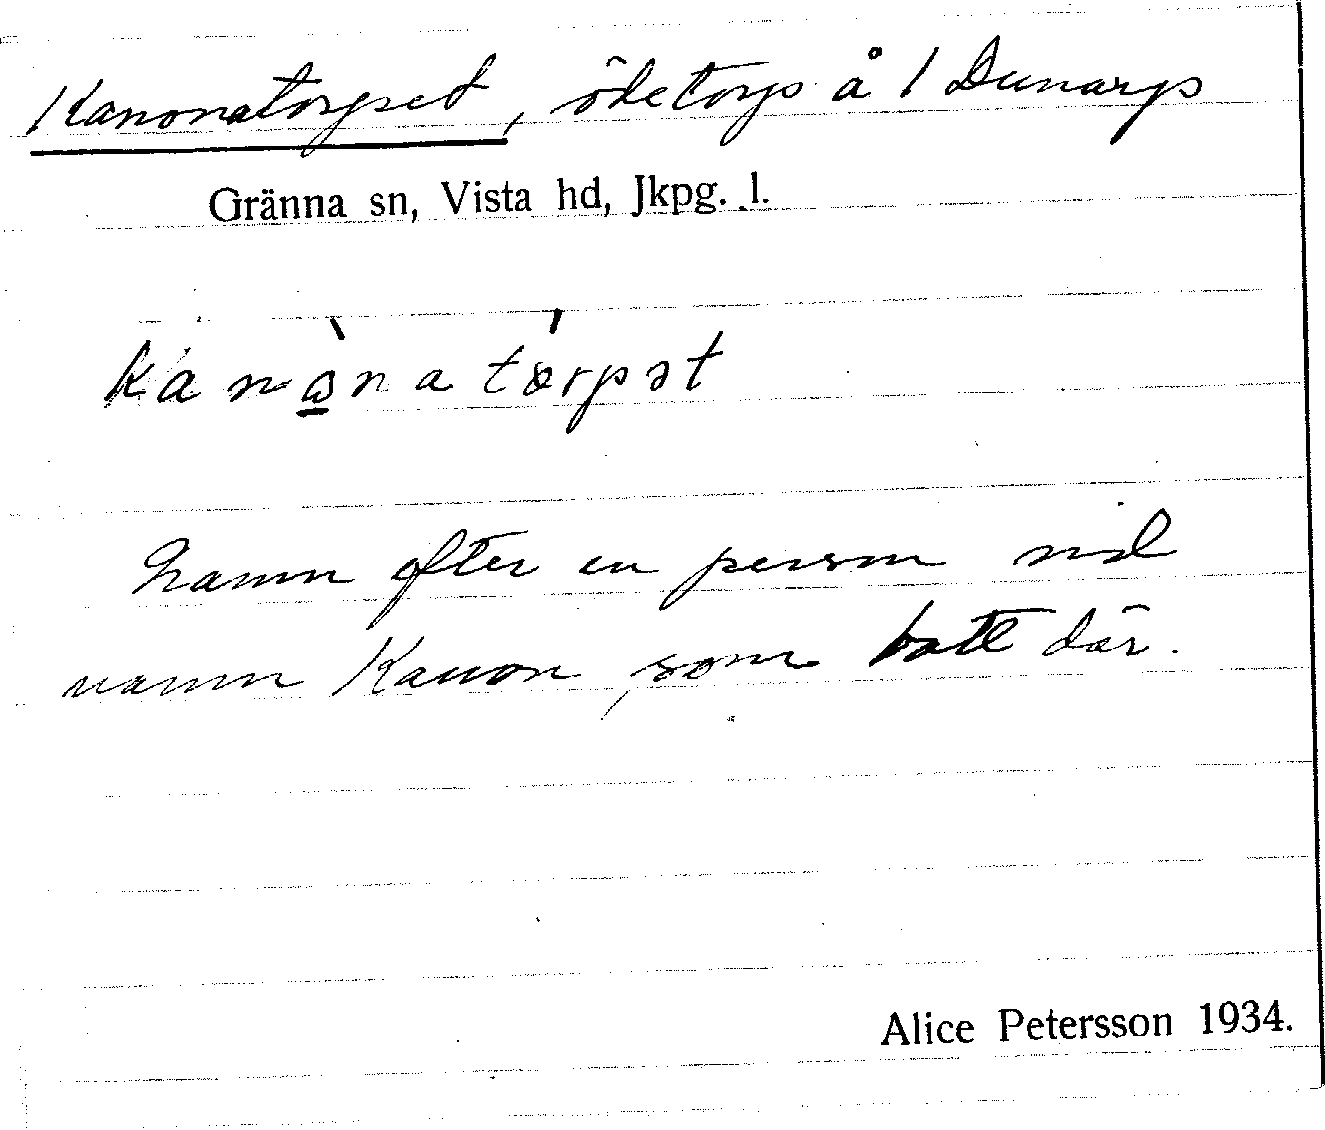 Kanonatorpet, ödetorp å 1 Dunarp
Gränna sn, Vista hd, Jkpg. l.
kanὼ̲natórpət
Namn efter en person vid
namn Kanon, som bott där.
Alice Petersson 1934.